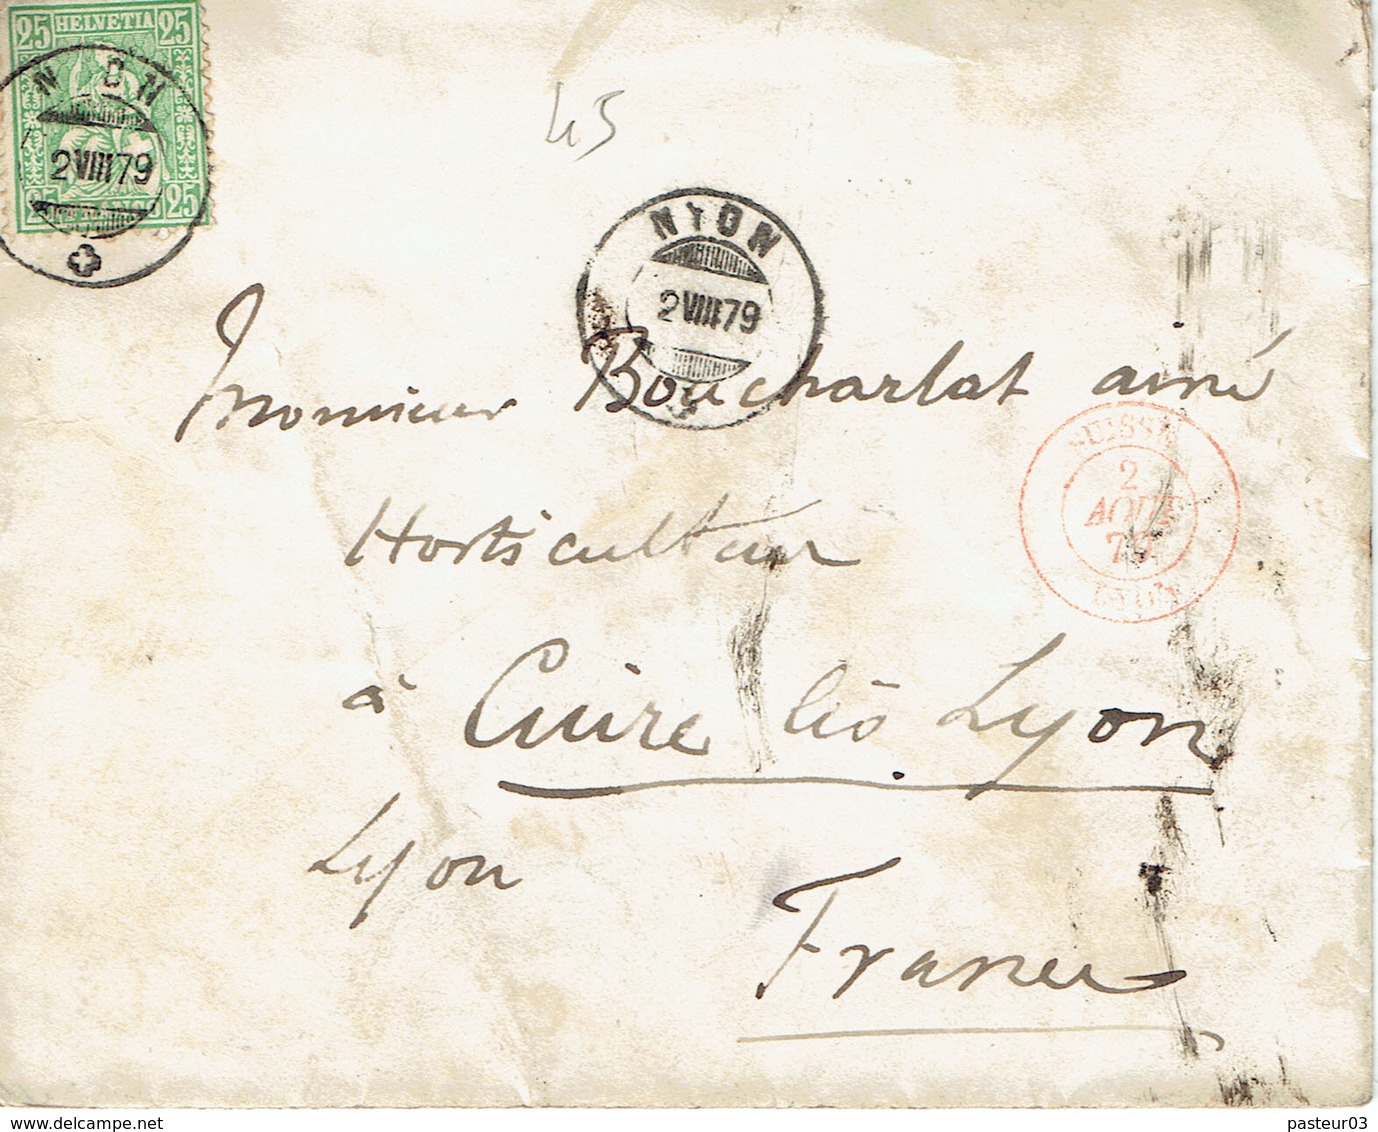 25 HELVETIA 25
NYON
2 VIII 79
25 25
45
NYON
2 VIII 79
Monsieur Boucharlat ainé
SUISSE
2
AOUT
79
LYON
Horticulteur
à Cuire lès Lyon
Lyon
France
www.delcampe.net
pasteur03